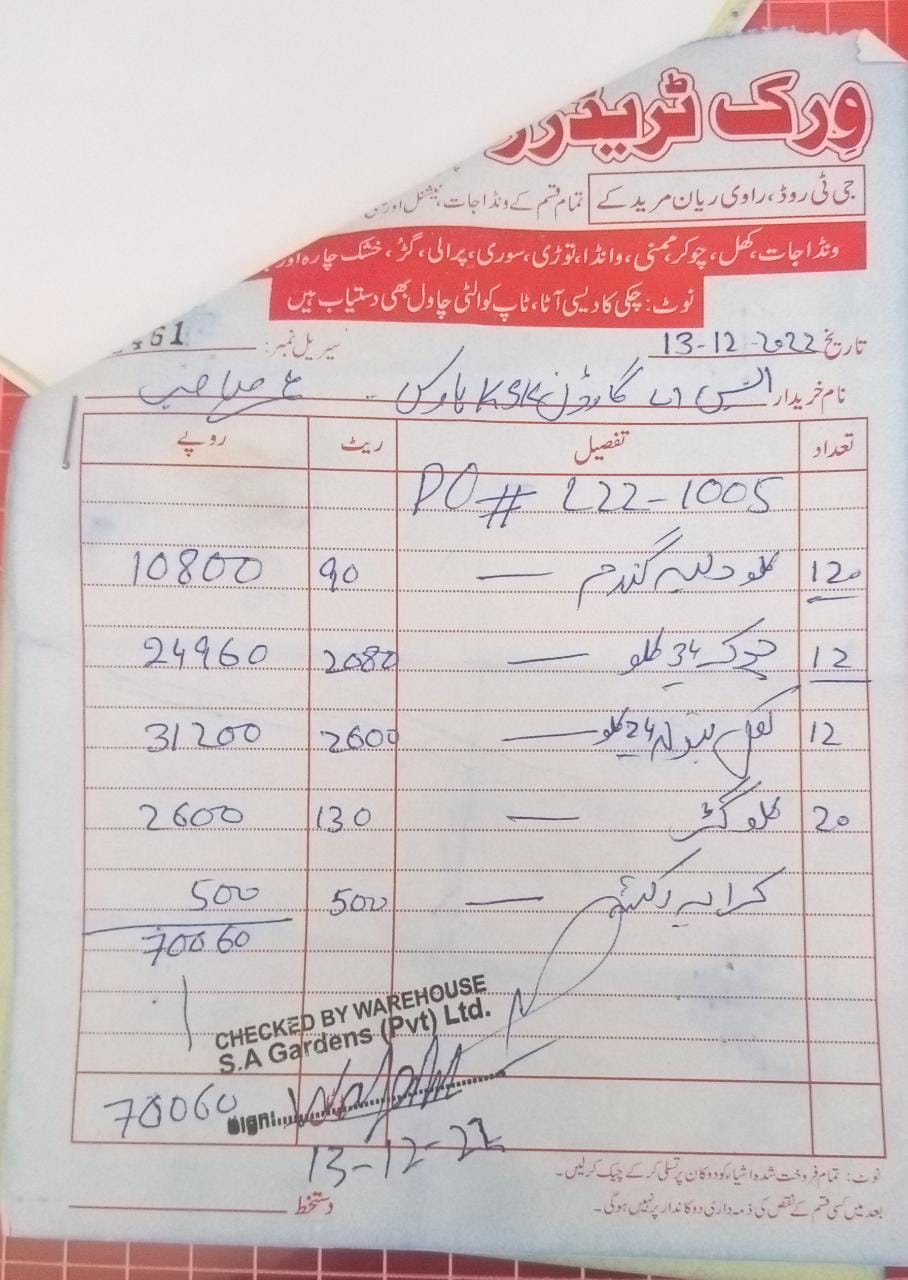 وِرک ٹریڈرز
جی ٹی روڈ، راوی ریان مریدکے
تمام قسم کے ونڈا جات، نیشنل اور سی
ونڈا جات، کھل، چوکر، ممنی، وانڈا، توڑی، سوری، پرالی، گڑ، خشک چارہ اور
نوٹ: چکی کا دیسی آٹا، ٹاپ کوالٹی چاول بھی دستیاب ہیں
تاریخ 13-12-2022 سیریل نمبر: 461
نام خریدار ایس اے گارڈن KSK ہاوس صاحب
تعداد تفصیل ریٹ روپے
PO# L22-1005
120 کلو دلیہ گندم — 90 10800
12 چوکر 34 کلو — 2080 24960
12 کھل بنولہ 24 کلو — 2600 31200
20 کلو گڑ — 130 2600
کرایہ رکشہ — 500 500
70060
CHECKED BY WAREHOUSE
S.A Gardens (Pvt) Ltd.
70060 Sign:
13-12-22
نوٹ: تمام فروخت شدہ اشیاء کو دوکان پر تسلی کر کے چیک کر لیں۔
بعد میں کسی قسم کے نقص کی ذمہ داری دوکاندار پر نہیں ہوگی۔
دستخط